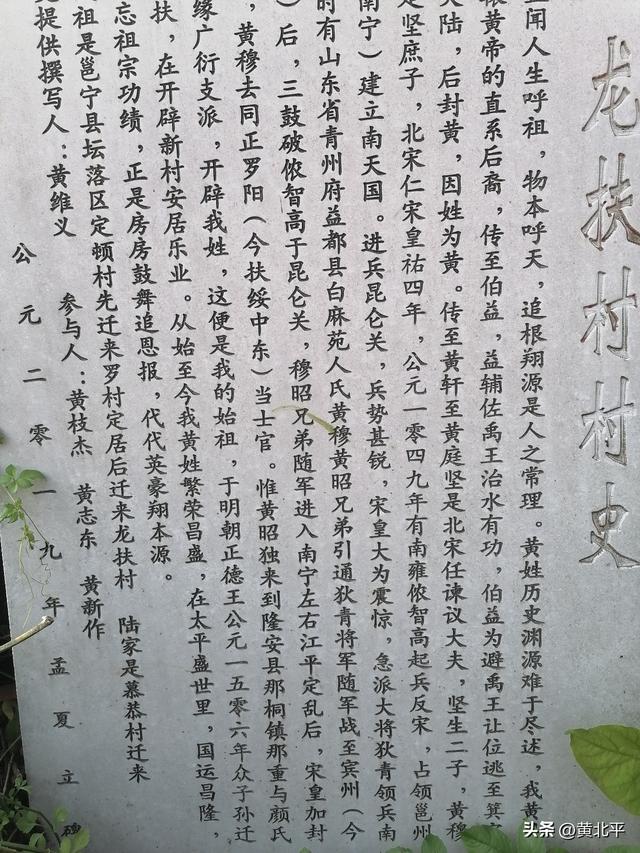 龙扶村村史
闻人生呼祖，物本呼天，追根翔源是人之常理。黄姓历史渊源难于尽述，我黄
黄帝的直系后裔，传至伯益，益辅佐禹王治水有功，伯益为避禹王让位逃至箕
大陆，后封黄，因姓为黄。传至黄轩至黄庭坚是北宋任谏议大夫，坚生二子，黄穆
是坚庶子，北宋仁宋皇祐四年，公元一零四九年有南雍侬智高起兵反宋，占领邕州
南宁）建立南天国。进兵昆仑关，兵势甚锐，宋皇大为震惊，急派大将狄青领兵南
时有山东省青州府益都县白麻苑人氏黄穆黄昭兄弟引通狄青将军随军战至宾州（今
）后，三鼓破侬智高于昆仑关，穆昭兄弟随军进入南宁左右江平定乱后，宋皇加封
，黄穆去同正罗阳（今扶绥中东）当士官。惟黄昭独来到隆安县那桐镇那重与颜氏
缘广衍支派，开辟我姓，这便是我的始祖，于明朝正德王公元一五零六年众子孙迁
扶，在开辟新村安居乐业。从始至今我黄姓繁荣昌盛，在太平盛世里，国运昌隆，
忘祖宗功绩，正是房房鼓舞追恩报，代代英豪翔本源。
祖是邕宁县坛落区定顿村先迁来罗村定居后迁来龙扶村　陆家是慕恭村迁来
提供撰写人：黄维义　参与人：黄枝杰　黄志东　黄新作
公元二零一九年孟夏立碑
头条 @黄北平